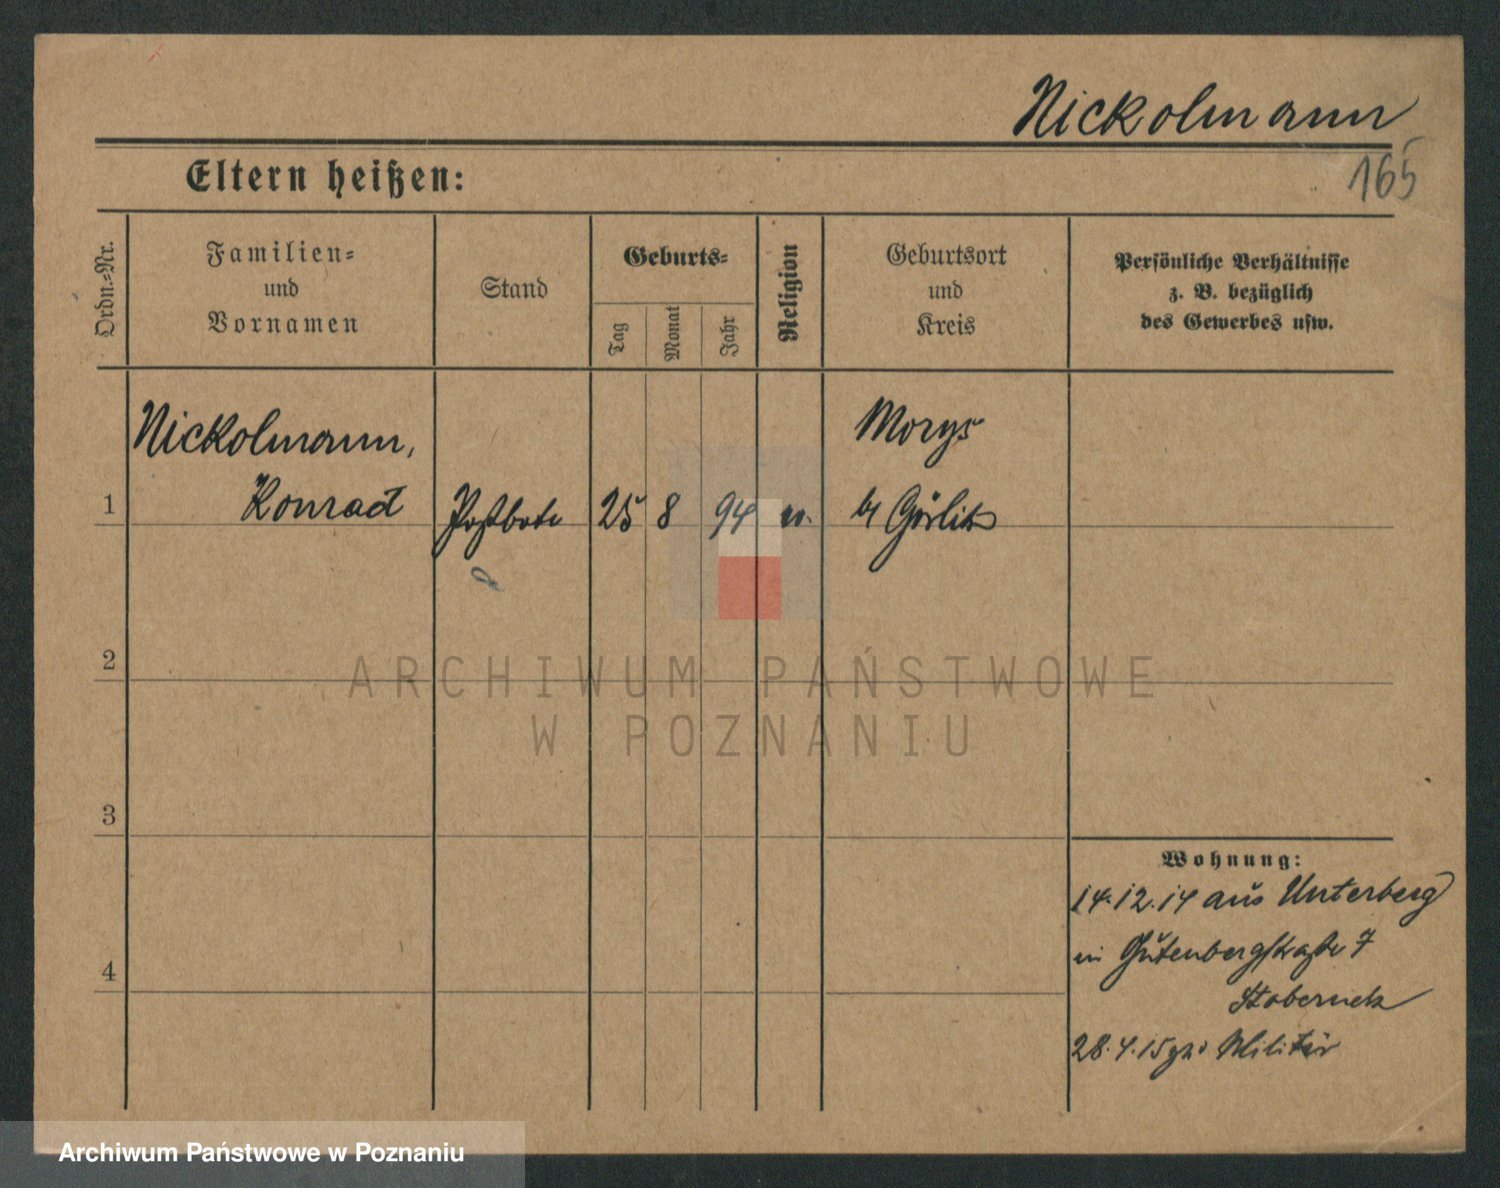 Nickolmann
165
Eltern heißen:
Ordn.=Nr.
Familien=
und
Vornamen
Stand
Geburts=
Tag
Monat
Jahr
Religion
Geburtsort
und
Kreis
Persönliche Verhältnisse
z. B. bezüglich
des Gewerbes usw.
Nickolmann, Morys
1 Konrad Postbote 25 8 94 Görlitz
2
ARCHIWUM PAŃSTWOWE
W POZNANIU
3
Wohnung:
14.12.14 aus Unterberg
in Gutenbergstraße 7
4
28.4.15 Militär
Archiwum Państwowe w Poznaniu